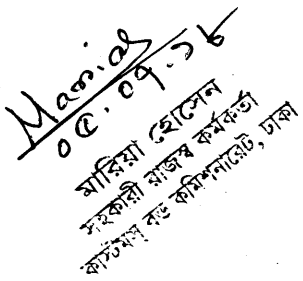 ০৫.০৭.১৮
মারিয়া হোসেন
সহকারী রাজস্ব কর্মকর্তা
কাস্টমস বন্ড কমিশনারেট, ঢাকা